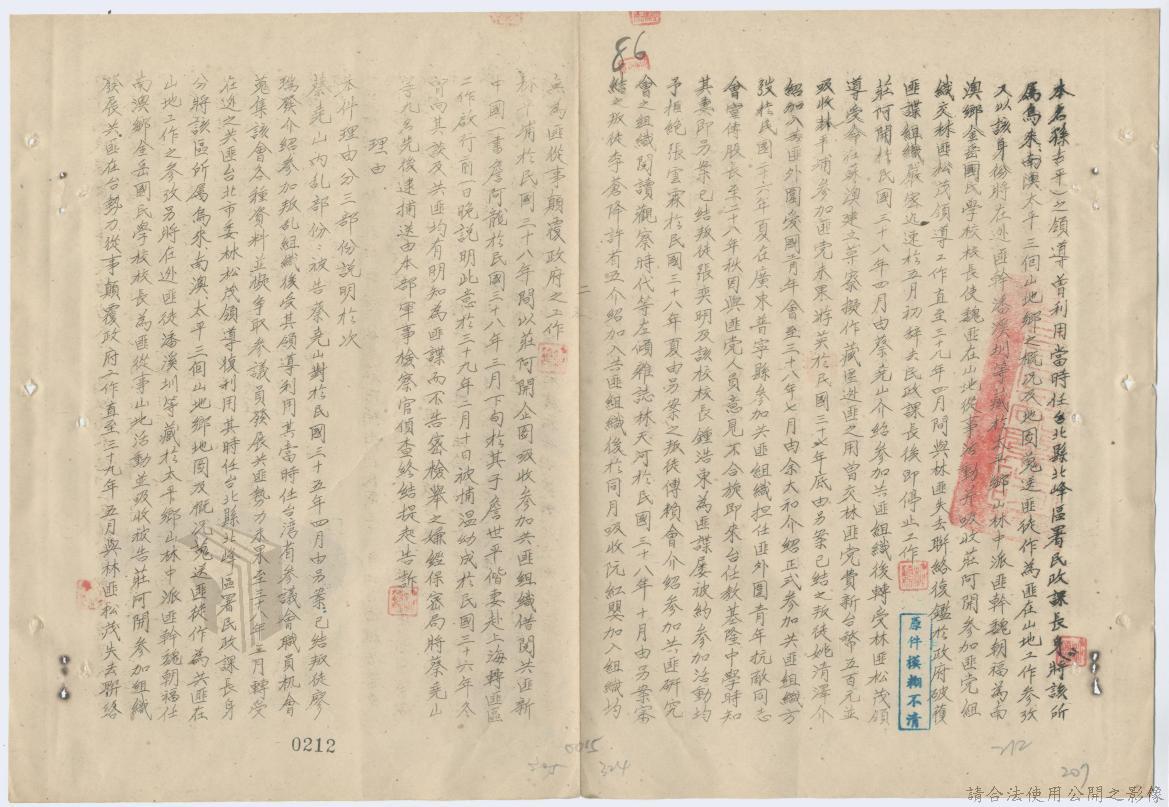 86
本名孫古平)之領導曾利用當時任台北縣北峰區署民政課長身將該所
屬烏來、南澳太平三個山地鄉之概況及地圖交送匪徒作為匪在山地工作參考
又以該身份將在逃匪幹潘溪圳等藏於太平鄉山林中派匪幹魏朝福為南
澳鄉金岳國民學校校長使魏匪在山地從事活動并吸收莊阿開參加匪党組
織交林匪松茂領導工作直至三十九年四月間與林匪失去聯絡後鑑於政府破獲
匪諜組織嚴家迅速於五月初辞去民政課長後即停止工作
莊阿開於民國三十八年四月由蔡堯山介紹參加共匪組織後轉受林匪松茂領
導受命在蘇澳建立草寮擬作藏匿逃匪之用曾交林匪党費新台幣五百元並
吸收林平浦參加匪党未果游英於民國三十七年底由另案已結之叛徒姚清澤介
紹加入共匪外圍愛國青年會至三十八年七月由余大和介紹正式參加共匪組織方
弢於民國二十六年夏在廣東普寧縣參加共匪組織担任匪外圍青年抗敵同志
會宣傳股長至二十八年秋因與匪党人員意見不合旋即來台任教基隆中學時知
其妻即另案已結叛徒張奕明及該校校長鍾浩東為匪諜屢被約參加活動均
予拒絕張雲霖於民國三十八年夏由另案之叛徒傅賴會介紹參加共匪研究
會之組織閱讀觀察時代等左傾雜誌林天河於民國三十八年十月由另案審
結之叛徒李蒼降許省五介紹加入共匪組織後於同月吸收阮紅嬰加入組織均
無為匪從事顛覆政府之工作
林平浦於民國三十八年間以莊阿開企圖吸收參加共匪組織借閱共匪新
中國一書詹阿龍於民國三十八年三月下旬於其子詹世平偕妻赴上海轉匪區
工作啟行前一日晚説明此意於三十九年二月十日被捕溫幼成於民國三十六年冬
曾向其談及共匪均有明知為匪諜而不告密檢舉之嫌經保密局將蔡堯山
等九名先後逮捕送由本部軍事檢察官偵查終結提起告訴
理由
本件理由分三部份說明於次
蔡堯山內乱部份:被告蔡堯山對於民國三十五年四月由另案已結叛徒廖
瑞發介紹參加叛乱組織後受其領導利用其當時任台湾省參議會職員机會
蒐集該會各種資料並擬爭取參議員發展共匪勢力未果至三十八年三月轉受
在逃之共匪台北市委林松茂領導復利用其時任台北縣北峰區署民政課長身
分將該區所屬烏來南澳太平三個山地鄉地圖及概況交送匪徒作為共匪在
山地工作之參考另將在逃匪徒潘溪圳等藏於太平鄉山林中派匪幹魏朝福任
南澳鄉金岳國民學校校長為匪從事山地活動並吸收被告莊阿開參加組織
發展共匪在台勢力從事顛覆政府工作直至三十九年五月與林匪松茂失去聯絡
二
原件模糊不清
0212
0015
325
324
212
207
請合法使用公開之影像